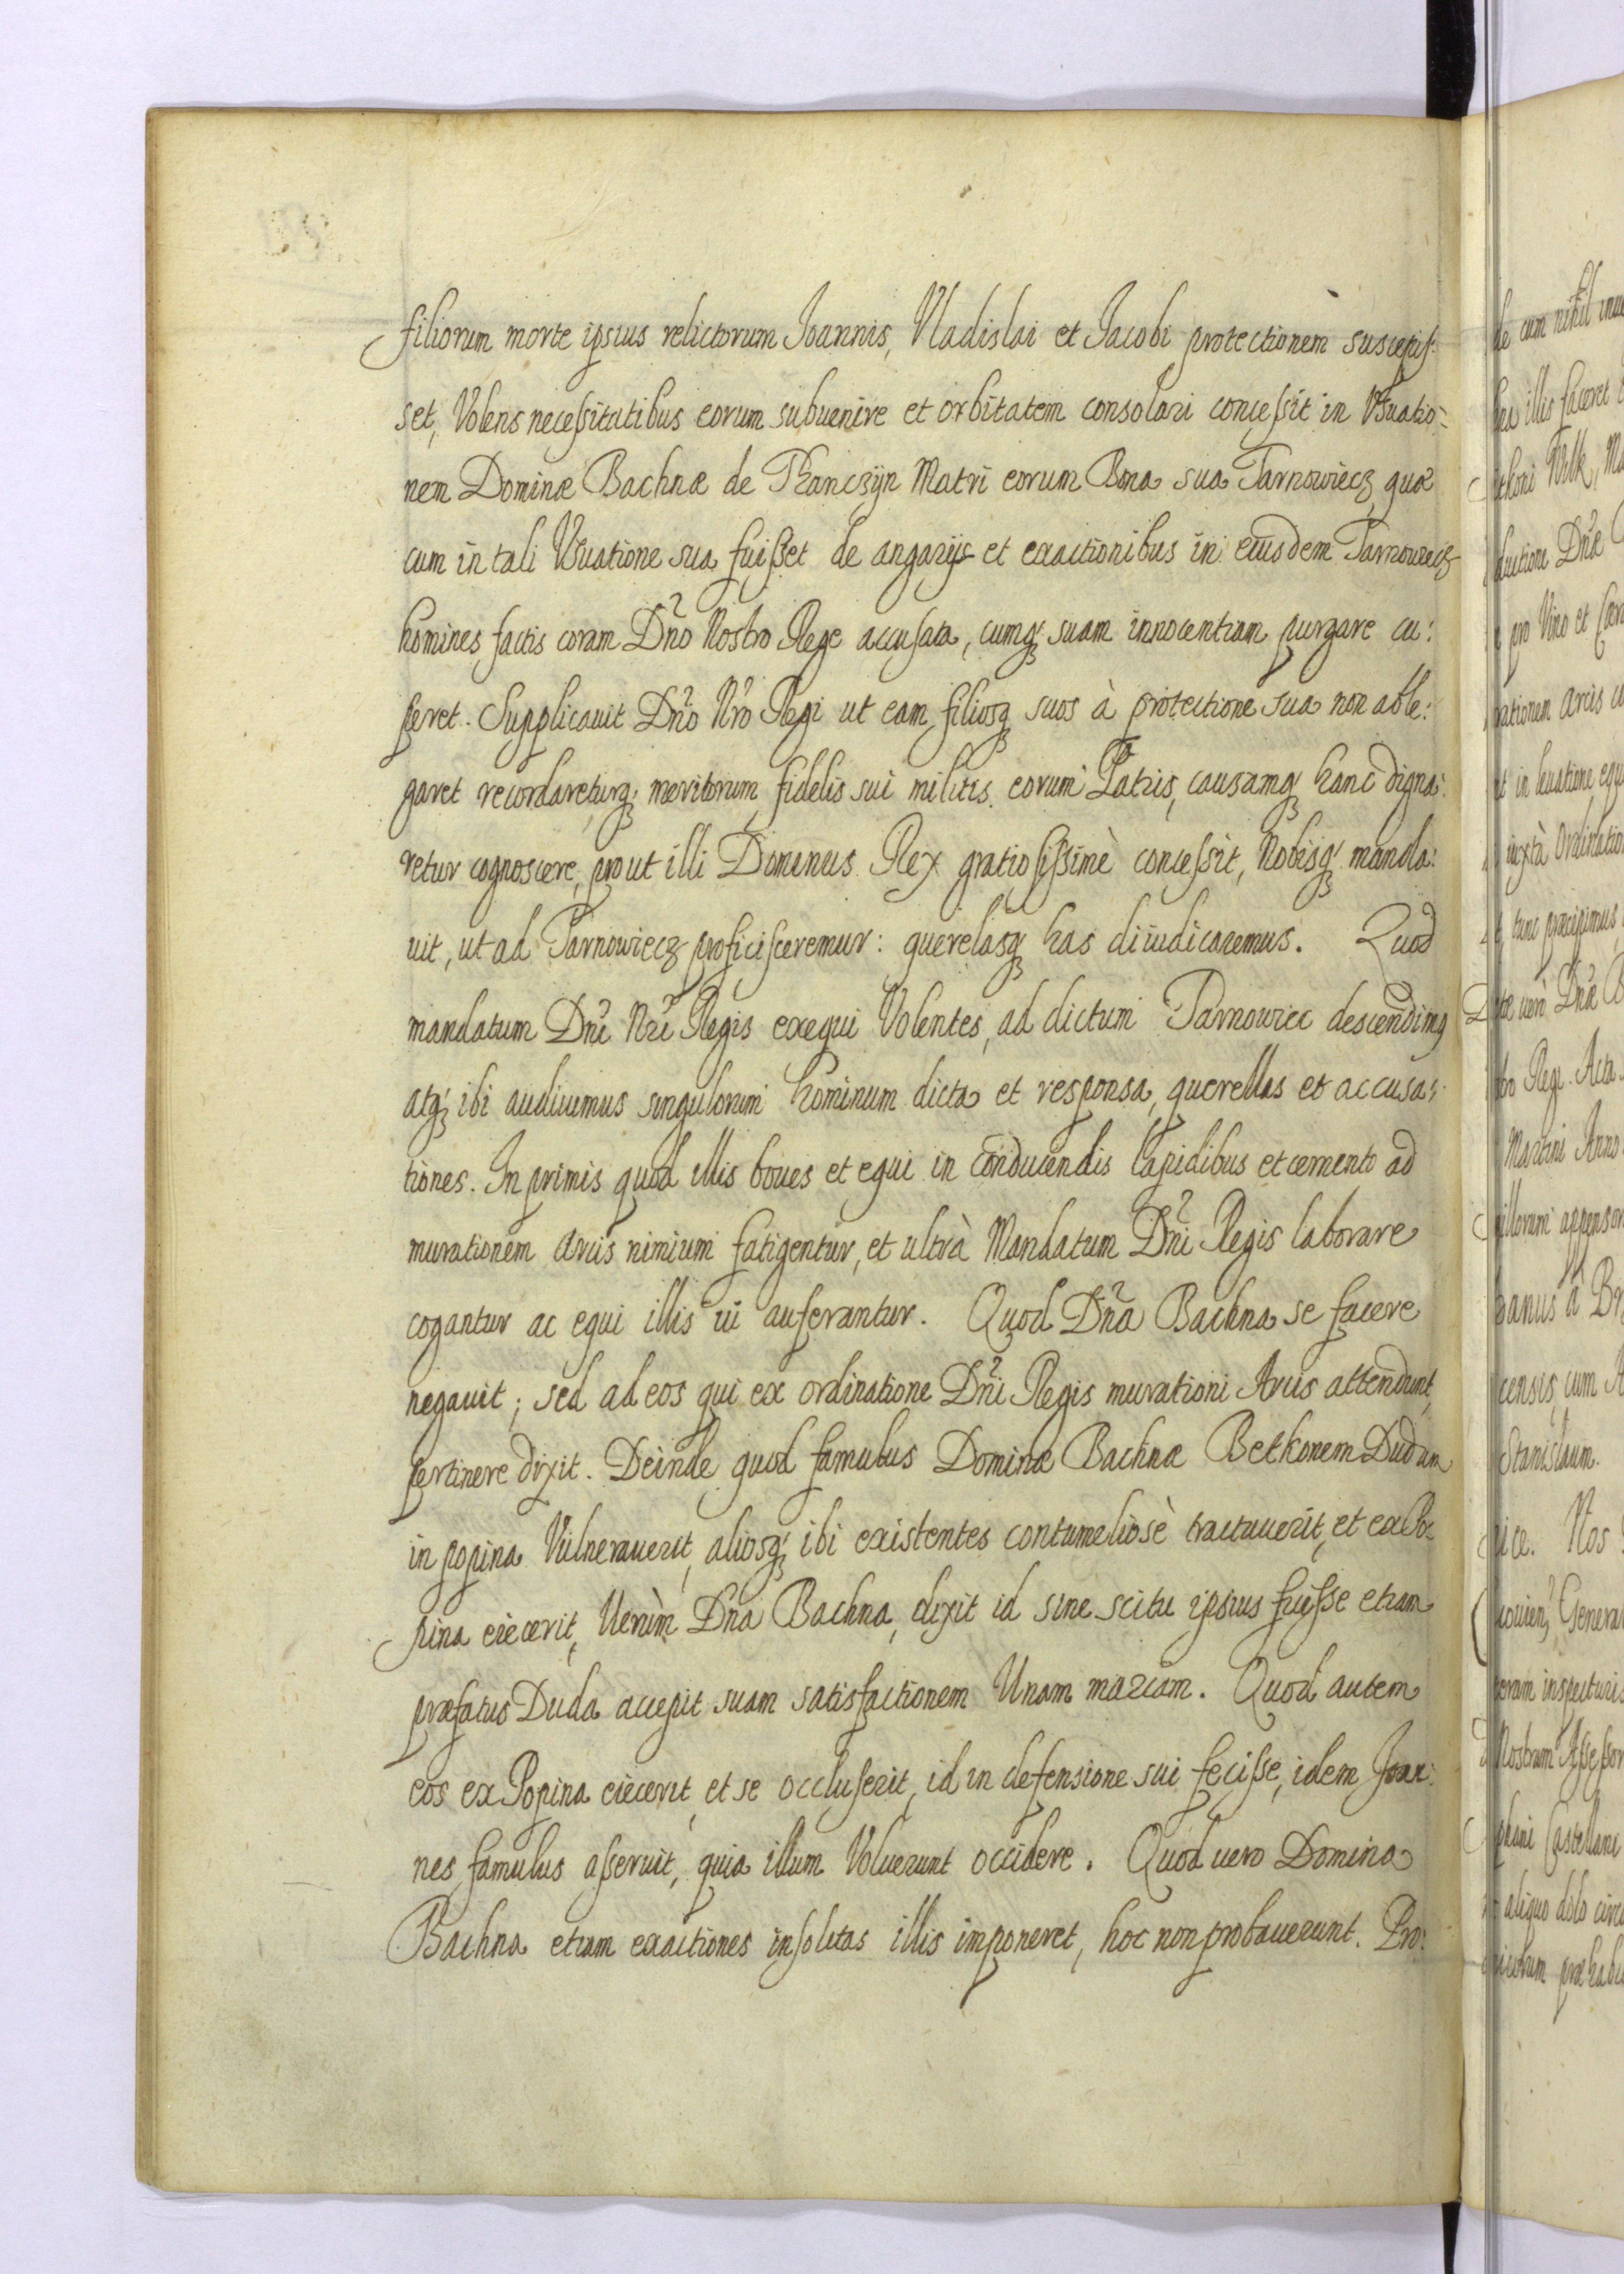 filiorum morte ipsius relictorum Joannis, Vladislai et Jacobi protectionem suscepis:
set, Volens necessitatibus eorum subuenire et orbitatem consolari concessit in Vsuatio:
nem Dominæ Bachnæ de Thanczÿn Matri eorum Bona sua Tarnowiecz, quæ
cum in tali Vsuatione sua fuisset de angarijs et exactionibus in eiusdem Tarnowiecz
homines factis coram Dño Nostro Rege accusata, cumq suam innocentiam purgare cu:
peret. Supplicauit Dño Nrõ Regi ut eam filiosq suos à protectione sua non able:
garet recordareturq meritorum fidelis sui militis eorum Patris, causamq hanc digna:
retur cognoscere, prout illi Dominus Rex gratiosissimè concessit, Nobisq manda:
uit, ut ad Tarnowiecz proficisceremur: querelasq has diiudicaremus. Quod
mandatum Dñi Nrĩ Regis exequi Volentes, ad dictum Tarnowiec descendimq
atq ibi audiuimus singulorum hominum dicta et responsa, querellas et accusa:
tiones. In primis quod illis boues et equi in conducendis lapidibus et cemento ad
murationem arcis nimium fatigentur, et ultrà Mandatum Dñi Regis laborare
cogantur ac equi illis ui auferantur. Quod Dña Bachna se facere
negauit; sed ad eos qui ex ordinatione Dñi Regis murationi Arcis attendunt,
pertinere dixit. Deinde quod famulus Dominæ Bachnæ Bethonem Dudam
in popina Vulnerauerit, aliosq ibi existentes contumeliosè tractauerit, et ex Po:
pina eiecerit, Verùm Dña Bachna, dixit id sine scitu ipsius fuisse etiam
præfatus Duda accepit suam satisfactionem Unam marcam. Quod autem
eos ex Popina eiecerit, et se occluserit, id in defensione sui fecisse, idem Joan:
nes famulus asseruit, quia illum Voluerunt occidere. Quod uero Domina
Bachna etiam exactiones insolitas illis imponeret, hoc non probauerunt. Pro: